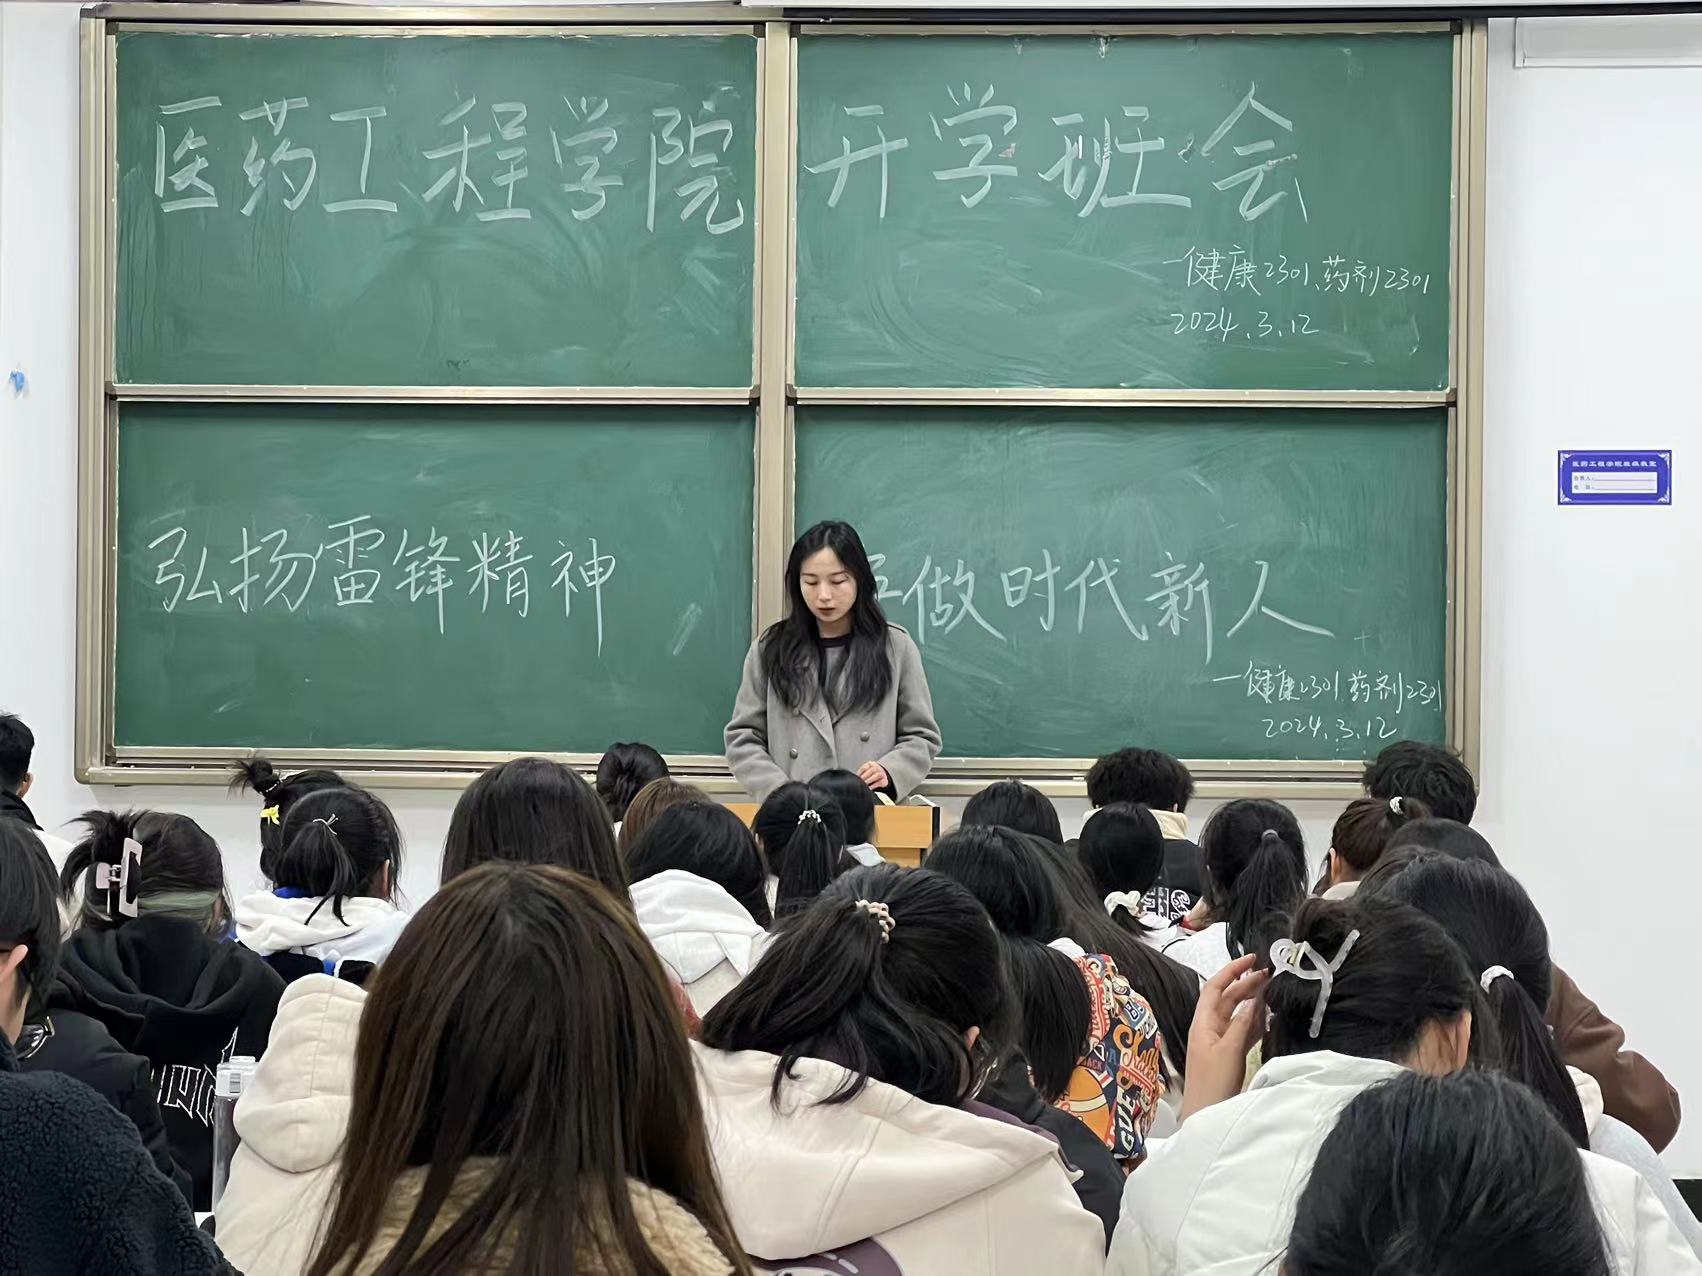 医药工程学院 开学班会
一健康2301、药剂2301
2024.3.12
弘扬雷锋精神
做时代新人
一健康2301药剂2301
2024.3.12
医药工程学院班级教室
负责人:
电 话:
GUE